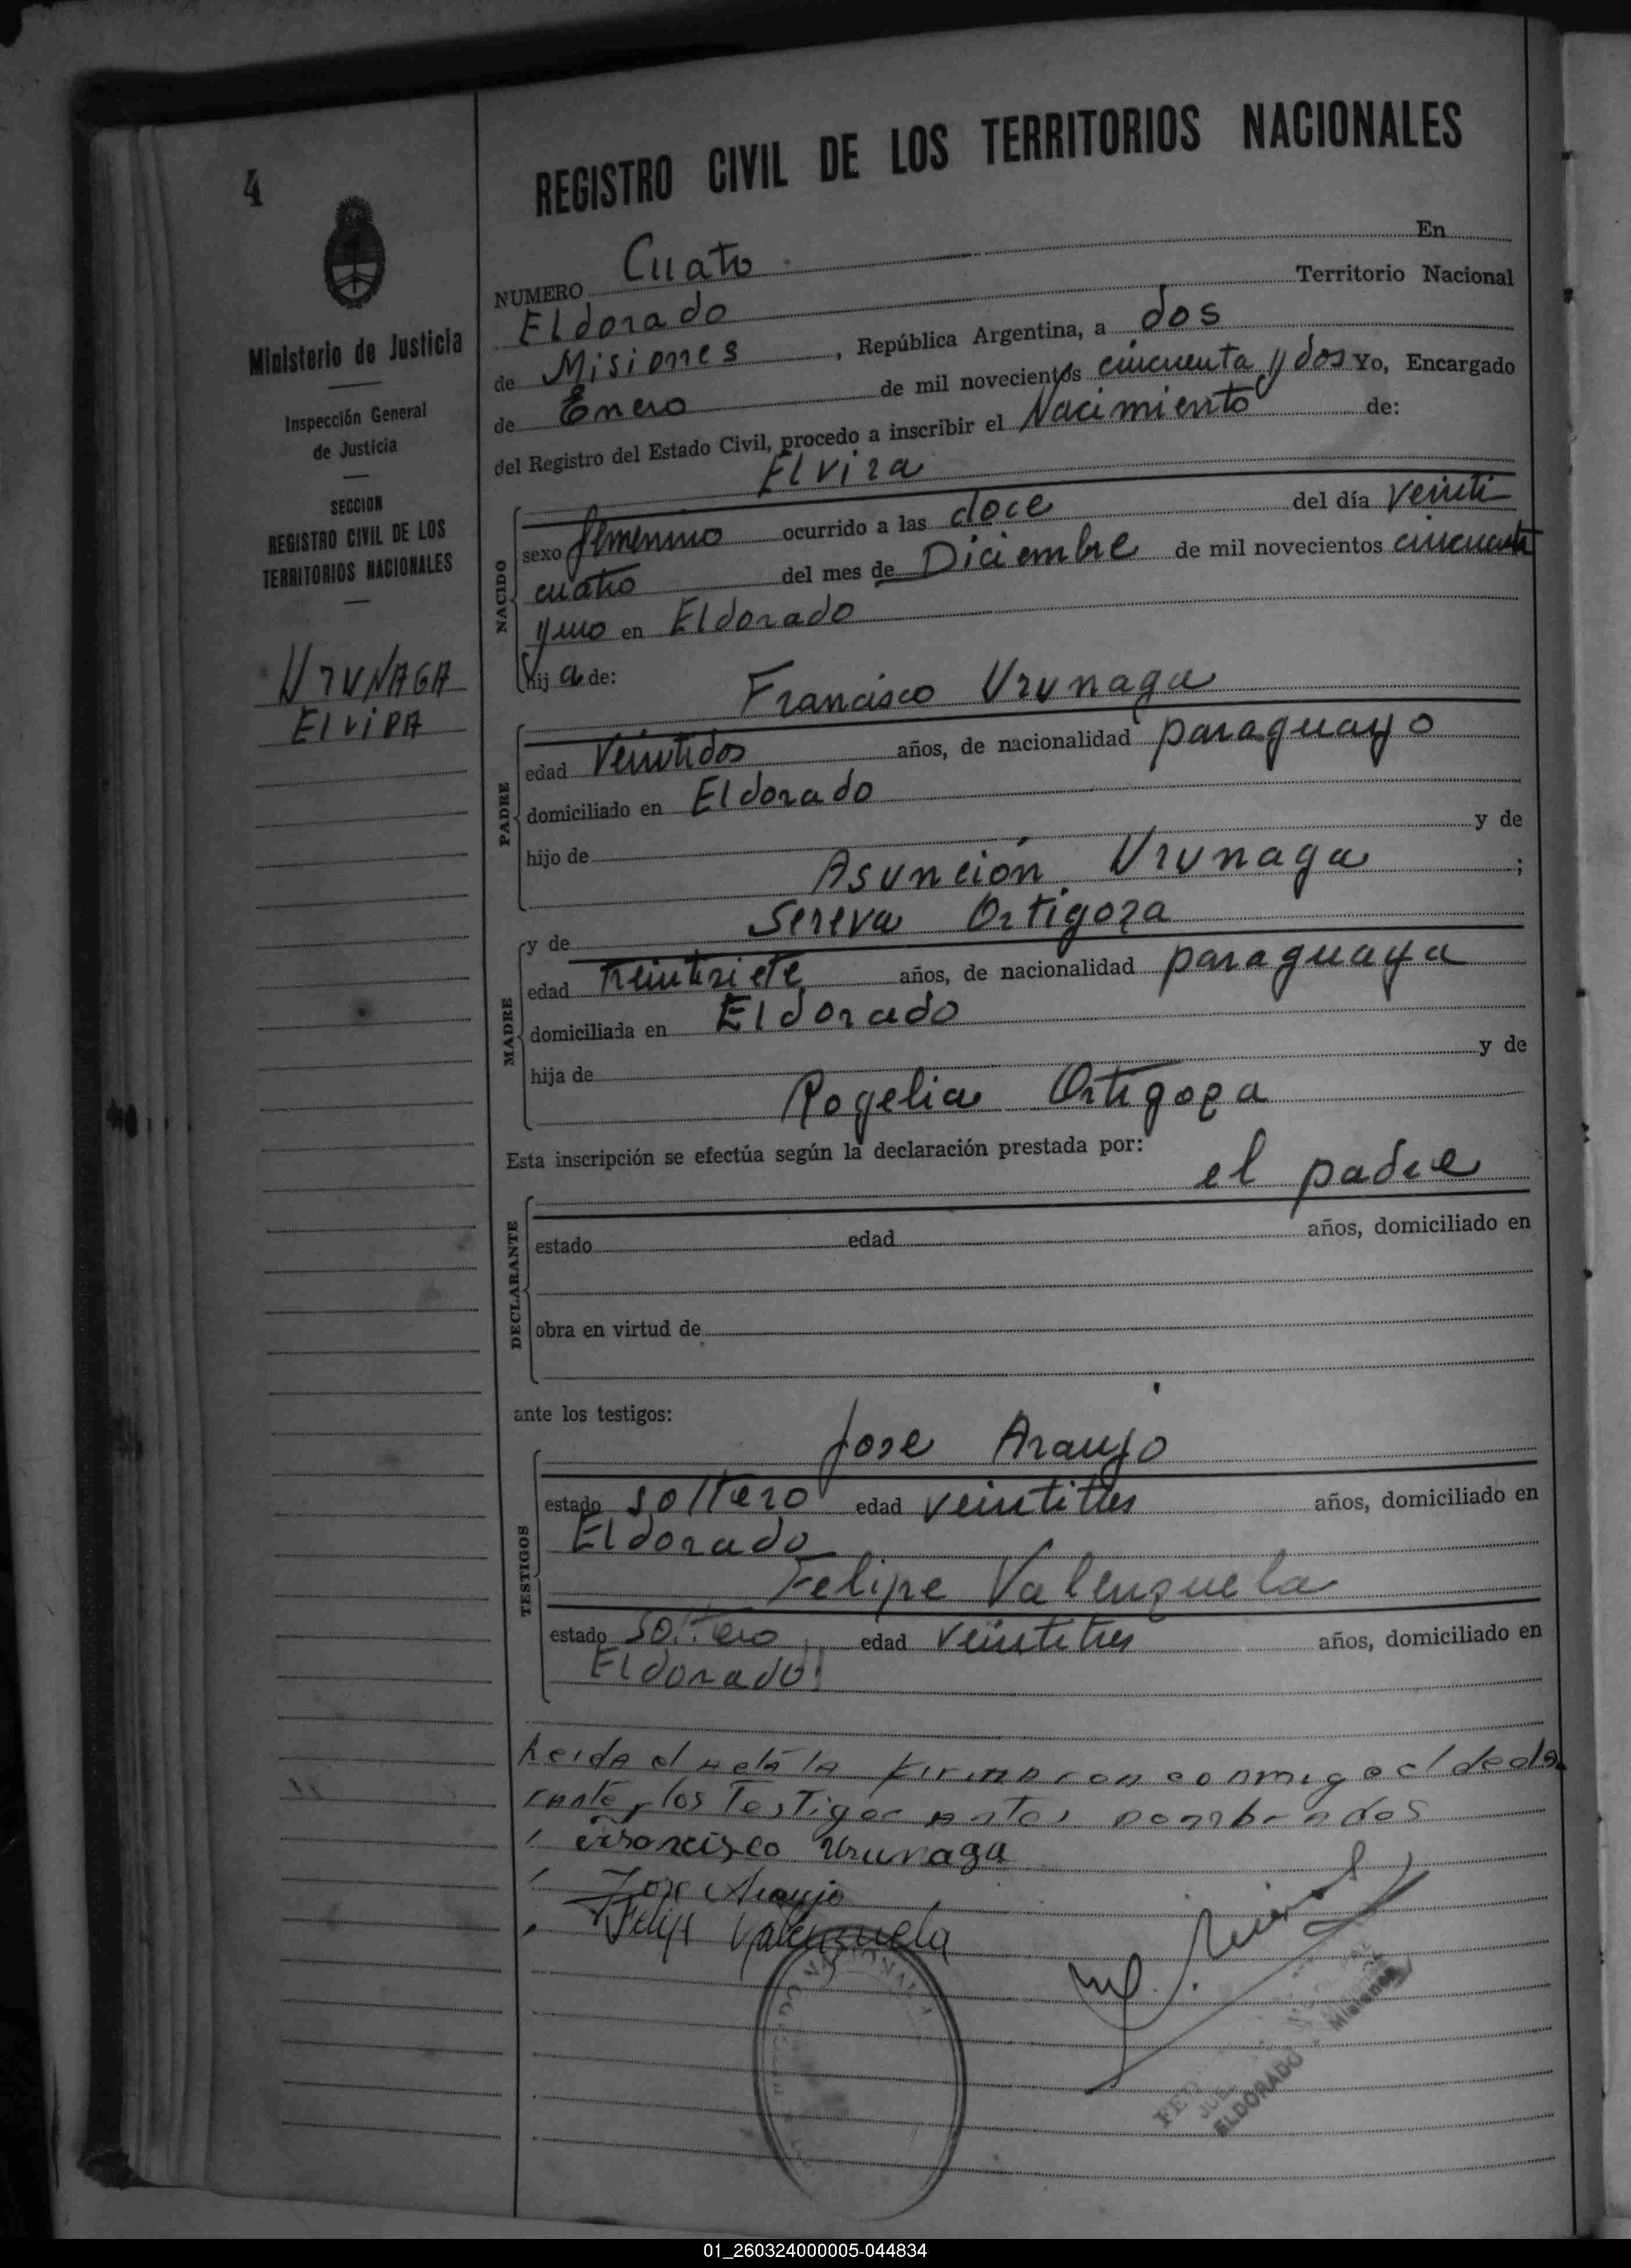 4
Ministerio de Justicia
Inspección General
de Justicia
SECCION
REGISTRO CIVIL DE LOS
TERRITORIOS NACIONALES
UrUNAGA
ElviRA
REGISTRO CIVIL DE LOS TERRITORIOS NACIONALES
NUMERO Cuatro En
Eldorado Territorio Nacional
de Misiones, República Argentina, a dos
de Enero de mil novecientos cincuenta y dos Yo, Encargado
del Registro del Estado Civil, procedo a inscribir el Nacimiento de:
Elvira
NACIDO
sexo femenino ocurrido a las doce del día veinti
cuatro del mes de Diciembre de mil novecientos cincuenta
y uno en Eldorado
hija de:
Francisco Urunaga
PADRE
edad Veintidos años, de nacionalidad paraguayo
domiciliado en Eldorado
hijo de y de
Asunción Urunaga ;
y de Sereva Ortigoza
MADRE
edad treintisiete años, de nacionalidad paraguaya
domiciliada en Eldorado
hija de y de
Rogelia Ortigoza
Esta inscripción se efectúa según la declaración prestada por:
el padre
DECLARANTE
estado edad años, domiciliado en
obra en virtud de
ante los testigos:
Jose Araujo
TESTIGOS
estado soltero edad veintitres años, domiciliado en
Eldorado
Felipe Valenzuela
estado soltero edad veintitres años, domiciliado en
Eldorado
Leida el acta la firmaron conmigo el decla
rante y los Testigos antes nombrados
Francisco Urunaga
Jose Araujo
Felipe Valenzuela
ELDORADO - Misiones
01_260324000005-044834